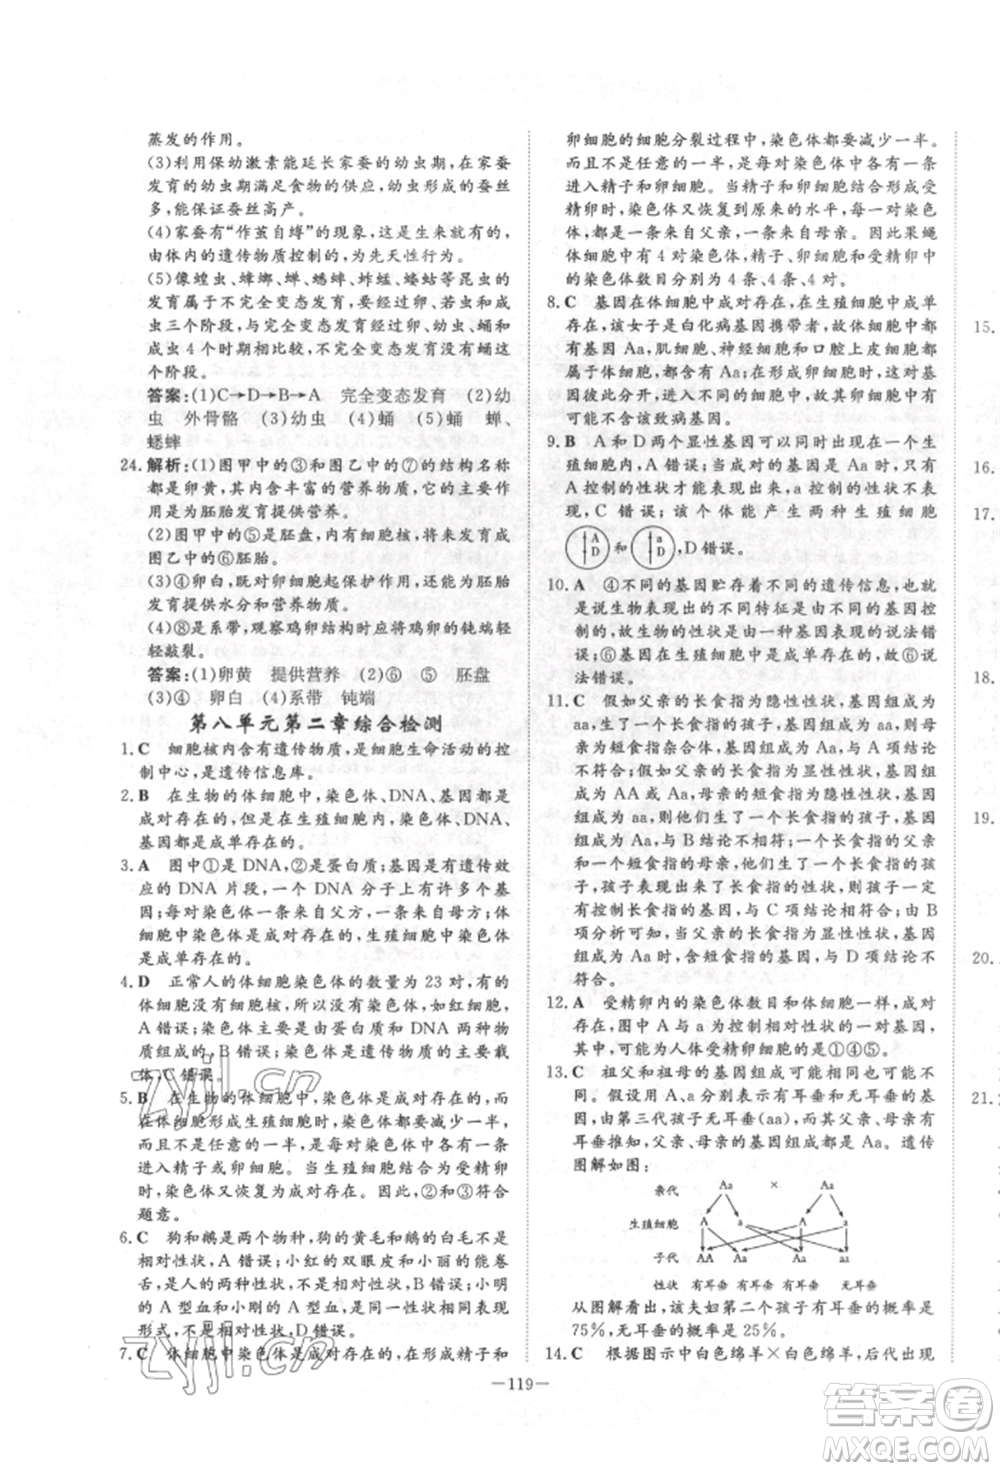 蒸发的作用。
(3)利用保幼激素能延长家蚕的幼虫期,在家蚕
发育的幼虫期满足食物的供应,幼虫形成的蚕丝
多,能保证蚕丝高产。
(4)家蚕有“作茧自缚”的现象,是生来就有的,
由体内的遗传物质控制的,为先天性行为。
(5)像蝗虫、蟑螂、蝉、蟋蟀、蚱蜢、蝼蛄等昆虫的
发育属于不完全变态发育,发育经过卵、幼虫和成
虫三个阶段,与完全变态发育经过卵、幼虫、蛹和成
虫 4 个时期相比较,不完全变态发育没有蛹这个
个阶段。
答案:(1)C→D→B→A 完全变态发育 (2)幼
虫 外骨骼 (3)幼虫 (4)蛹 (5)蛹 蝉、
蟋蟀
24. 解析:(1)图甲中的③和图乙中的⑦的结构名称
都是卵黄,其内含丰富的营养物质,营养物质能为
胚胎发育提供营养。
(2)图甲中的⑤是胚盘,内有细胞核,能发育成
图乙中的⑥胚胎。
(3)④卵白,既对卵细胞起保护作用,还能为胚胎
发育提供水分和营养物质。
(4)⑧是系带,观察鸡卵结构时应将鸡卵的钝端轻
轻敲裂。
答案:(1)卵黄 提供营养 (2)⑥ ⑤ 胚盘
(3)④ 卵白 (4)系带 钝端
第八单元第二章综合检测
1. C 细胞核内含有遗传物质,是细胞生命活动的控
制中心,是遗传信息库。
2. B 在生物的体细胞中,染色体、DNA、基因都是
成对存在的,但是在生殖细胞中,染色体、DNA、
基因都是成单存在的。
3. A 图中①是 DNA,②是蛋白质;基因是有遗传效
应的 DNA 片段,一个 DNA 分子上有许多个基
因;每对染色体一条来自父方,一条来自母方;生
物体细胞中染色体是成对存在的,生殖细胞中染
色体是成单存在的。
4. D 正常人的体细胞染色体的数量为 23 对,有的
体细胞没有细胞核,所以没有染色体,如红细胞,
A 错误;染色体主要是由蛋白质和 DNA 两种物
质组成的,B 错误;染色体是遗传物质的主要载
体,C 错误。
5. B 在生物的体细胞中,染色体是成对存在的,而
在体细胞形成生殖细胞时,染色体要减少一半,而
且不是任意的一半,是每对染色体中各有一条进
入精子或卵细胞。当生殖细胞结合形成受精卵
时,染色体又恢复为成对存在。因此,②③符合
题意。
6. C 狗和鹅是两个物种,狗的黄毛和鹅的白毛不同
一性状,A 错误;小红的双眼皮和小丽的能卷
舌,是两种性状,不是同一性状,B 错误;小明
的 A 型血和小刚的 A 型血是同一性状的相同表现
形式,不是相对性状,D 错误。
7. C 体细胞中染色体是成对存在的,在形成精子和
卵细胞的细胞分裂过程中,染色体都要减少一半,
而且不是任意的一半,是每对染色体中各有一条
进入精子和卵细胞。当精子和卵细胞结合形成受
精卵时,染色体又恢复到原来的水平,每对染色体
中的一条来自父亲,一条来自母亲。因此果蝇
(体细胞含 4 对染色体)的体细胞、精子、卵细胞中
的染色体数目分别为 4 条、4 条、4 对。
8. C 基因在体细胞中成对存在,在生殖细胞中成单
存在,该女子是白化病基因携带者,体细胞中都
有基因 Aa,肌细胞、神经细胞和口腔上皮细胞都
是体细胞,都含有 Aa,当形成卵细胞时,成对的基
因彼此分开,进入不同的卵细胞中,故卵细胞中
可能不含有该致病基因。
9. B A 和 D 两个显性基因可能表现在一个生
殖细胞内,A 错误;当成对的基因是 Aa 时,只有
A 控制的性状才能表现出来,a 控制的性状不表
现,C 错误;该个体能产生两种生殖细胞
和 ,D 错误。
10. A ④不同的基因贮存着不同的遗传信息,也就
是说生物表现出的不同特征是由不同基因控
制的,故生物的性状是由同一个基因控制的说法
错误;⑥基因只在生殖细胞中存在,故⑥说法
错误。
11. C 假如母亲的短食指为隐性性状,基因组成为
aa,生了一个长食指的孩子,基因组成为 Aa,则母
亲为短食指杂合体,基因组成为 Aa,与 A 项结论
不符合;假如父亲的长食指为显性性状,基因组
成为 AA 或 Aa,母亲的短食指为隐性性状,基因
组成为 aa,则他们生了一个长食指的孩子,基因
组成为 Aa,与 C 项结论符合;一个长食指的父亲
和一个短食指的母亲,他们生了一个长食指的孩
子,无论长食指是显性还是隐性,孩子体内一定
有控制长食指的基因,与 C 项结论符合;由 B 项
分析可知,当父亲的长食指为显性性状时,父亲
可能会含短食指的基因,与 D 项结论
不符合。
12. A 受精卵内的染色体数目和体细胞一样,成对
存在,图中 A 与 a 为控制相对性状的一对基因,
其中,可能为人体受精卵细胞的是①④⑤。
13. C 祖父和祖母的基因组成可能相同也可能不
同。假设用 A、a分别表示有耳垂和无耳垂的基
因,由第三代孩子无耳垂(aa),其父亲、母亲都有
耳垂推知,父亲、母亲的基因组成都是 Aa。遗传
图解如图:
亲代 Aa × Aa
生殖细胞 A a A a
子代 AA Aa Aa aa
性状 有耳垂 有耳垂 有耳垂 无耳垂
从图解看出,该夫妇第二个孩子有耳垂的概率是
75%,无耳垂的概率是 25%。
14. C 根据图示中白色绵羊×白色绵羊,后代出现
15.
16.
17.
18.
19.
20.
21.
—119—
zyjl.cn
zyjl.cn
答案圈
MXQE.COM